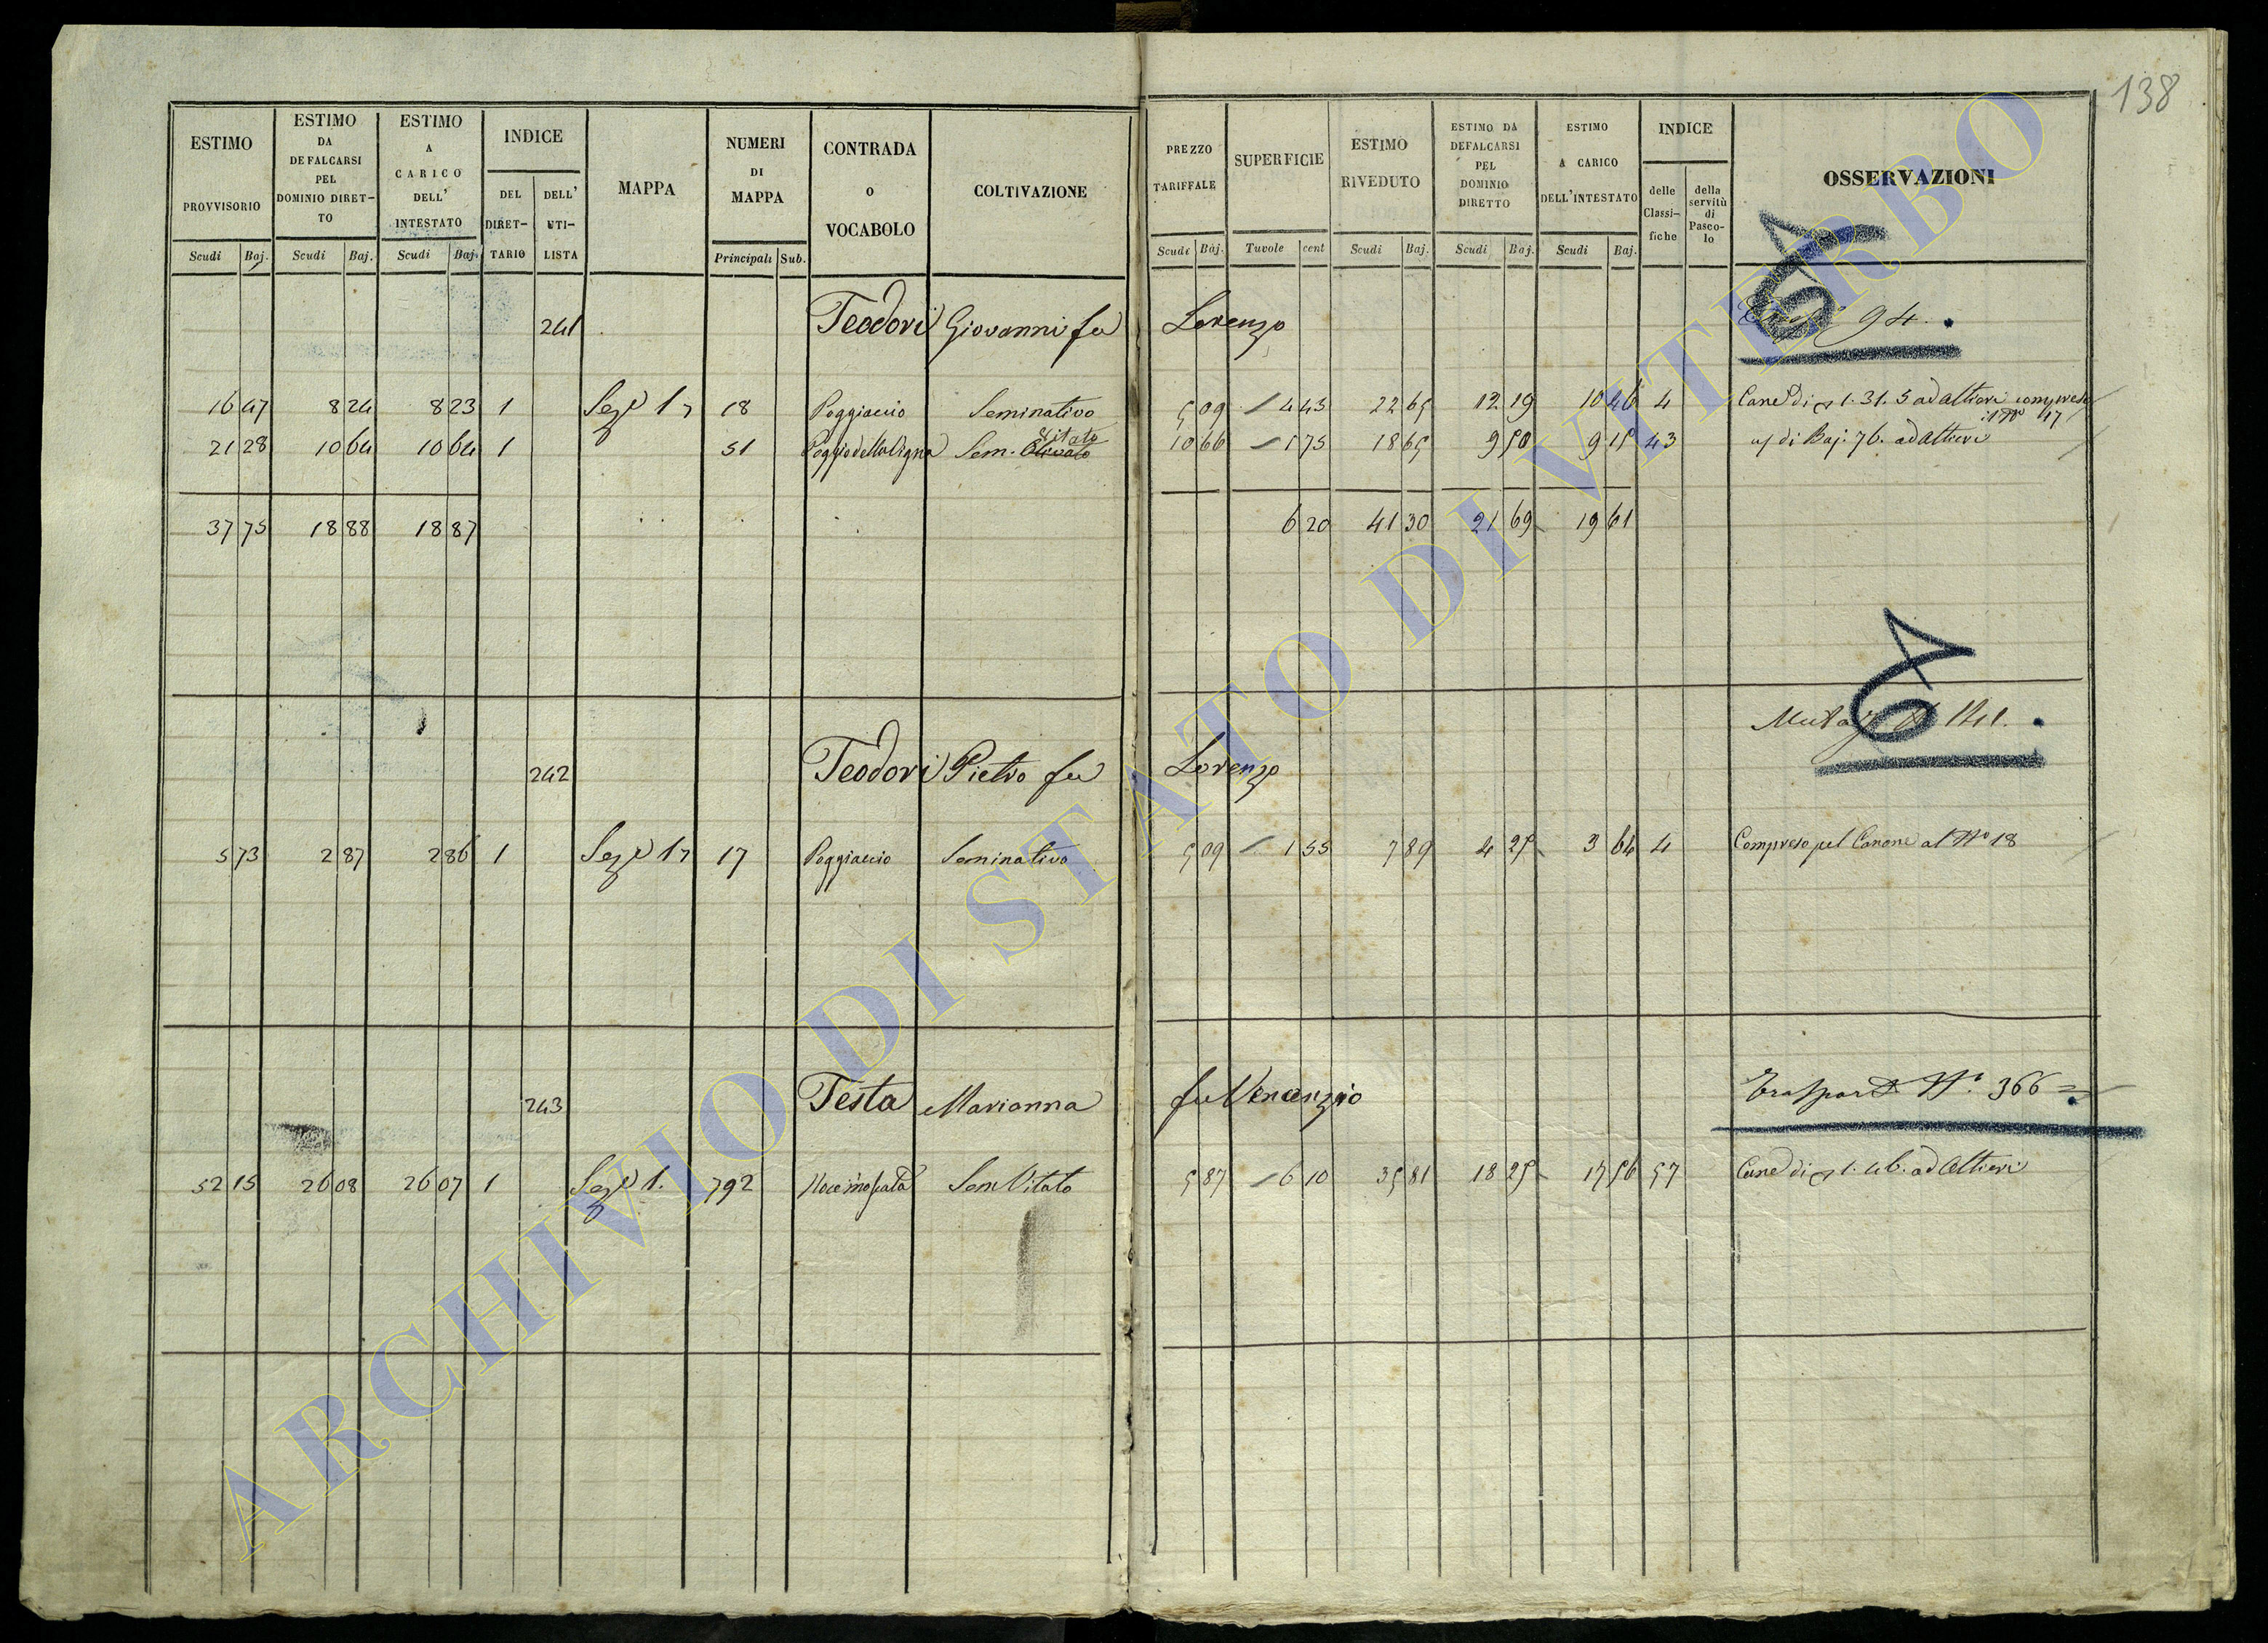 138
ESTIMO PROVVISORIO Scudi Baj.
ESTIMO DA DEFALCARSI PEL DOMINIO DIRETTO Scudi Baj.
ESTIMO A CARICO DELL' INTESTATO Scudi Baj.
INDICE DEL DIRETTARIO DELL' UTILISTA
MAPPA
NUMERI DI MAPPA Principali Sub.
CONTRADA O VOCABOLO
COLTIVAZIONE
PREZZO TARIFFALE Scudi Baj.
SUPERFICIE Tavole cent
ESTIMO RIVEDUTO Scudi Baj.
ESTIMO DA DEFALCARSI PEL DOMINIO DIRETTO Scudi Baj.
ESTIMO A CARICO DELL'INTESTATO Scudi Baj.
INDICE delle Classifiche della servitù di Pascolo
OSSERVAZIONI
241 Teodori Giovanni fu Lorenzo 94.
16 47 8 24 8 23 1 Sez.e 1 18 Poggiaccio Seminativo 5 09 4 45 22 65 12 19 10 46 4 Can.e di 1.31.5 ad Altieri compreso il N.o 17
21 28 10 64 10 64 1 51 Poggio della Vigna Sem. Olivato Vitato 10 66 1 75 18 65 9 50 9 15 43 di Baj. 76. ad Altieri
37 75 18 88 18 87 6 20 41 30 21 69 19 61
242 Teodori Pietro fu Lorenzo 141.
5 73 2 87 2 86 1 Sez.e 1 17 Poggiaccio Seminativo 5 09 1 55 7 89 4 25 3 64 4 Compreso pel Canone al N.o 18
243 Testa Marianna fu Venanzio Trasport N.o 366
52 15 26 08 26 07 1 Sez.e 1. 792 Sem Vitato 5 87 6 10 35 81 18 25 17 56 57 Can.e di 1.46. ad Altieri
ARCHIVIO DI STATO DI VITERBO